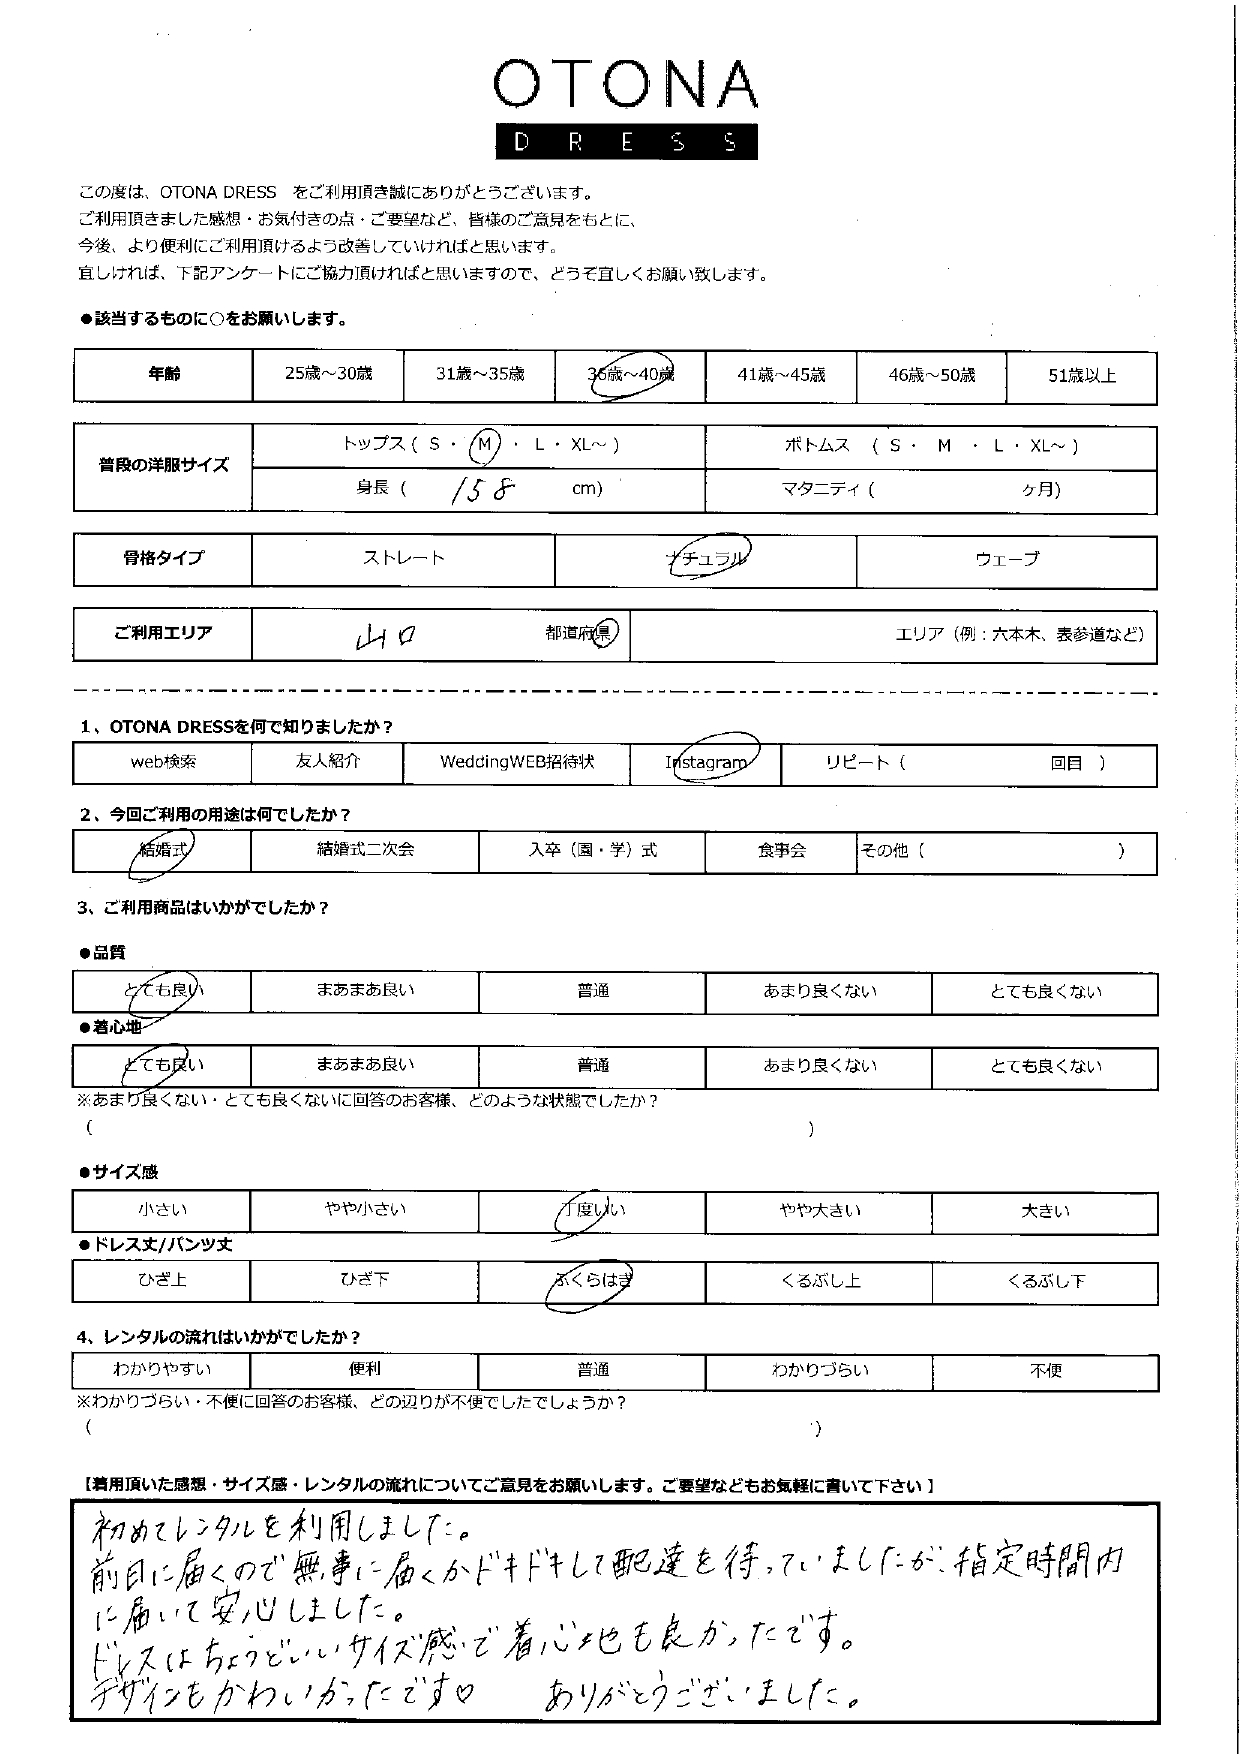 OTONA
DRESS
この度は、OTONA DRESS　をご利用頂き誠にありがとうございます。
ご利用頂きました感想・お気付きの点・ご要望など、皆様のご意見をもとに、
今後、より便利にご利用頂けるよう改善していければと思います。
宜しければ、下記アンケートにご協力頂ければと思いますので、どうぞ宜しくお願い致します。
●該当するものに○をお願いします。
年齢 25歳～30歳 31歳～35歳 36歳～40歳 41歳～45歳 46歳～50歳 51歳以上
普段の洋服サイズ トップス ( S ・ M ・ L ・ XL～ ) ボトムス ( S ・ M ・ L ・ XL～ )
身長 ( 158 cm) マタニティ ( ヶ月)
骨格タイプ ストレート ナチュラル ウェーブ
ご利用エリア 山口 都道府県 エリア（例：六本木、表参道など）
1、OTONA DRESSを何で知りましたか？
web検索 友人紹介 WeddingWEB招待状 Instagram リピート ( 回目 )
2、今回ご利用の用途は何でしたか？
結婚式 結婚式二次会 入卒（園・学）式 食事会 その他 ( )
3、ご利用商品はいかがでしたか？
●品質
とても良い まあまあ良い 普通 あまり良くない とても良くない
●着心地
とても良い まあまあ良い 普通 あまり良くない とても良くない
※あまり良くない・とても良くないに回答のお客様、どのような状態でしたか？
( )
●サイズ感
小さい やや小さい 丁度いい やや大きい 大きい
●ドレス丈/パンツ丈
ひざ上 ひざ下 ふくらはぎ くるぶし上 くるぶし下
4、レンタルの流れはいかがでしたか？
わかりやすい 便利 普通 わかりづらい 不便
※わかりづらい・不便に回答のお客様、どの辺りが不便でしたでしょうか？
( )
【着用頂いた感想・サイズ感・レンタルの流れについてご意見をお願いします。ご要望などもお気軽に書いて下さい】
初めてレンタルを利用しました。
前日に届くので無事に届くかドキドキして配達を待っていましたが、指定時間内
に届いて安心しました。
ドレスはちょうどいいサイズ感で着心地も良かったです。
デザインもかわいかったです♡　ありがとうございました。